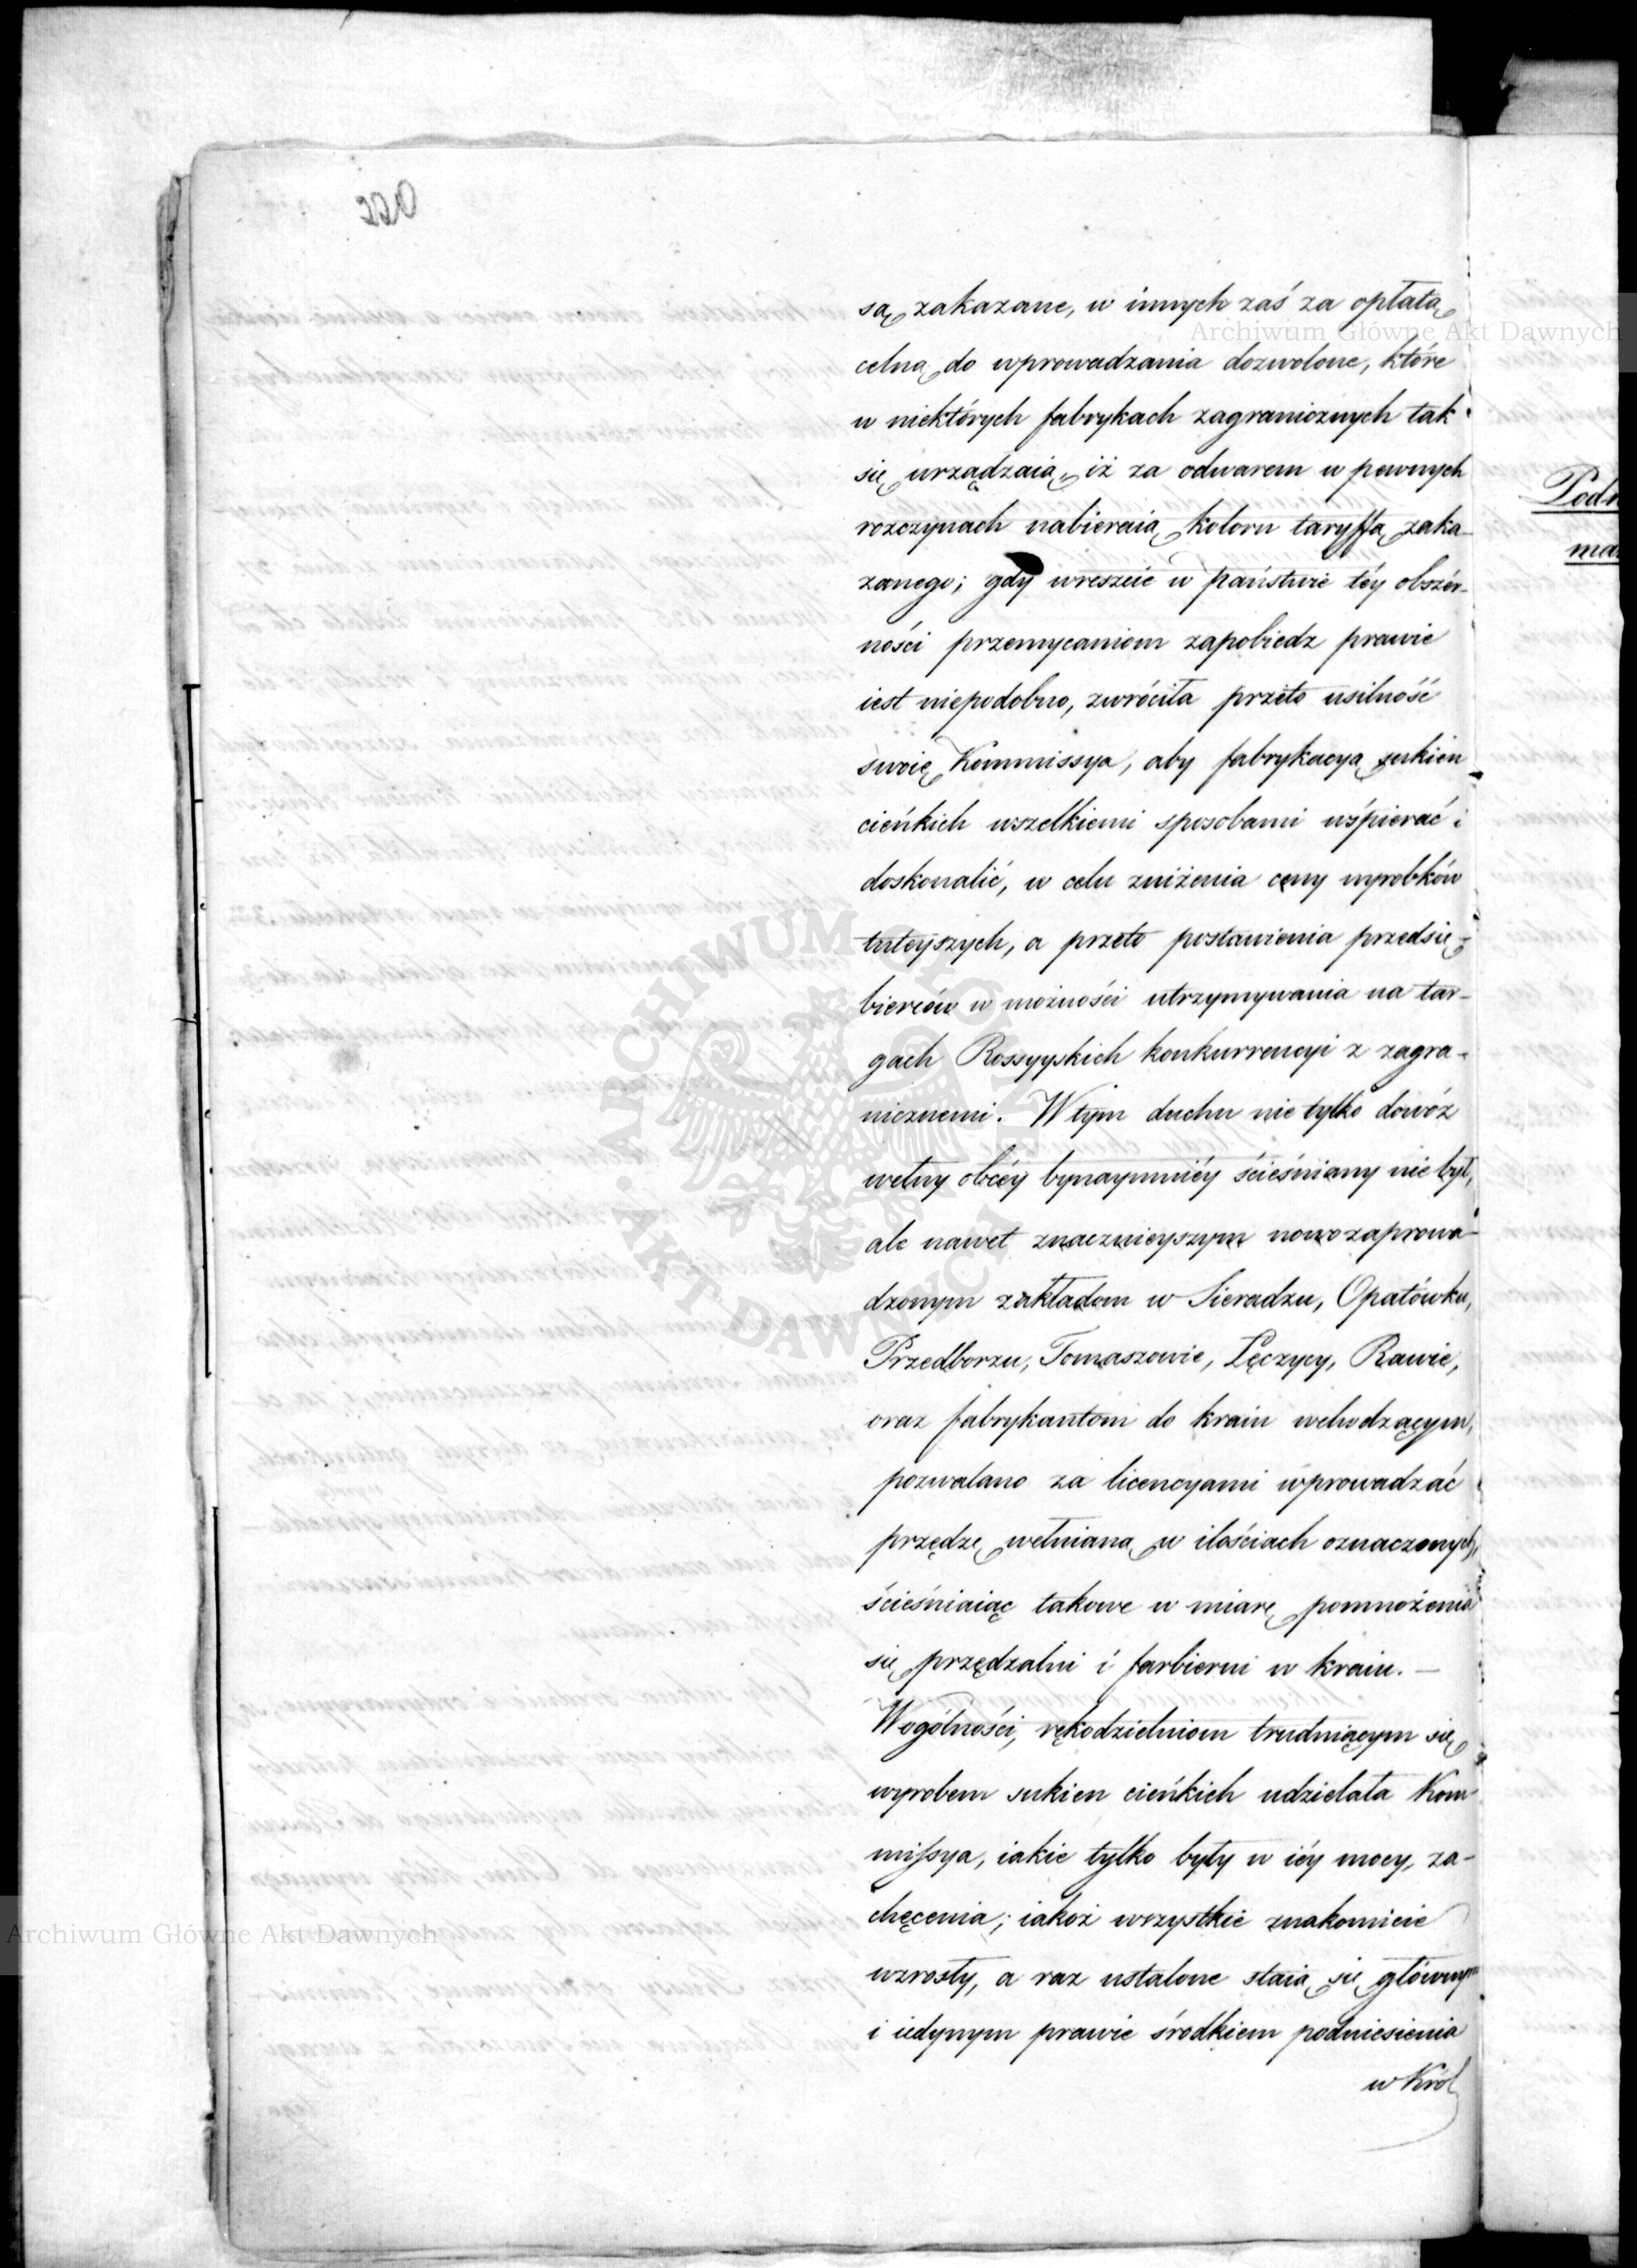 są zakazane, w innych zaś za opłatą
celną do wprowadzania dozwolone, które
w niektórych fabrykach zagranicznych tak
się urządzaią, iż za odwarem w pewnych
rozczynach nabieraią koloru taryffą zaka-
zanego; gdy wreszcie w państwie téy obszér-
ności przemycaniom zapobiedz prawie
iest niepodobno, zwróciła przeto usilność
swoię Kommissya, aby fabrykacyą sukien
cieńkich wszelkiemi sposobami wśpierać i
doskonalić, w celu zniżenia ceny wyrobków
tuteyszych, a przeto postawienia przedsię-
bierców w możności utrzymywania na tar-
gach Rossyyskich konkurrencyi z zagra-
nicznemi. W tym duchu nie tylko dowóz
wełny obcéy bynaymniéy ścieśniany nie był,
ale nawet znacznieyszym nowo zaprowa-
dzonym zakładom w Sieradzu, Opatówku,
Przedborzu, Tomaszowie, Łęczycy, Rawie,
oraz fabrykantom do kraiu wchodzącym,
pozwalano za licencyami wprowadzać
przędzę wełnianą w ilościach oznaczonych,
ścieśniaiąc takowe w miarę pomnożenia
się przędzalni i farbierni w kraiu. —
W ogólności, rękodzielniom trudniącym się
wyrobem sukien cieńkich udzielała Kom-
missya, iakie tylko były w iéy mocy, za-
chęcenia; iakoż wszystkie znakomicie
wzrosły, a raz ustalone staią się głównym
i iedynym prawie środkiem podniesienia
w Król
Archiwum Główne Akt Dawnych
Archiwum Główne Akt Dawnych